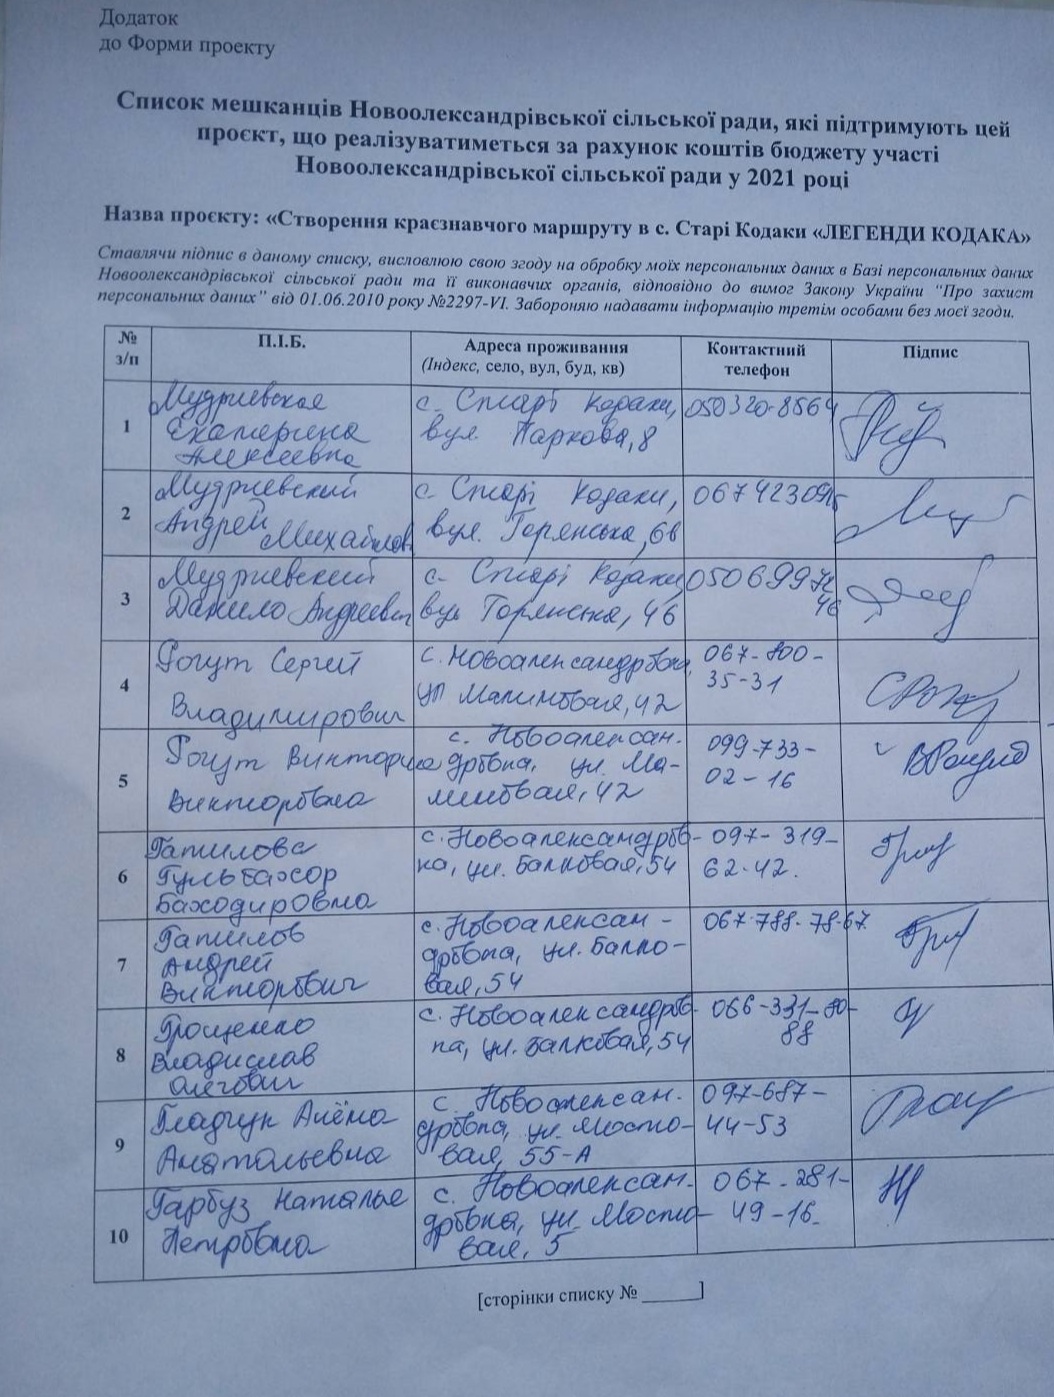 Додаток
до Форми проекту
Список мешканців Новоолександрівської сільської ради, які підтримують цей
проєкт, що реалізуватиметься за рахунок коштів бюджету участі
Новоолександрівської сільської ради у 2021 році
Назва проєкту: «Створення краєзнавчого маршруту в с. Старі Кодаки «ЛЕГЕНДИ КОДАКА»
Ставлячи підпис в даному списку, висловлюю свою згоду на обробку моїх персональних даних в Базі персональних даних
Новоолександрівської сільської ради та її виконавчих органів, відповідно до вимог Закону України "Про захист
персональних даних" від 01.06.2010 року №2297-VI. Забороняю надавати інформацію третім особами без моєї згоди.
№ з/п П.І.Б. Адреса проживання (Індекс, село, вул, буд, кв) Контактний телефон Підпис
1 Мудриевская Екатерина Алексеевна с. Старі Кодаки, вул. Паркова, 8 050320-8564
2 Мудриевский Андрей Михайлов с. Старі Кодаки, вул. Горянська, 6в
3 Мудриевский Данило Андреевич с. Старі Кодаки вул Горянська, 46
4 Рогут Сергей Владимирович с. Новоалександровка, ул Малиновая, 42 067-800-35-31
5 Рогут Виктория Викторовна с. Новоалександровка, ул. Малиновая, 42 099-733-02-16
6 Гульбахор Баходировна с. Новоалександровка, ул. Балковая, 54 097-319-62-42.
7 Андрей Викторович с. Новоалександровка, ул. Балковая, 54 067-788-78-67
8 Грощенко Владислав Олегович с. Новоалександровка, ул. Балковая, 54 066-331-80-88
9 Гладчук Алёна Анатольевна с. Новоалександровка, ул. Мостовая, 55-А 097-687-44-53
10 Гарбуз Наталье Петровна с. Новоалександровка, ул. Мостовая, 5 067-281-49-16
[сторінки списку № ______]